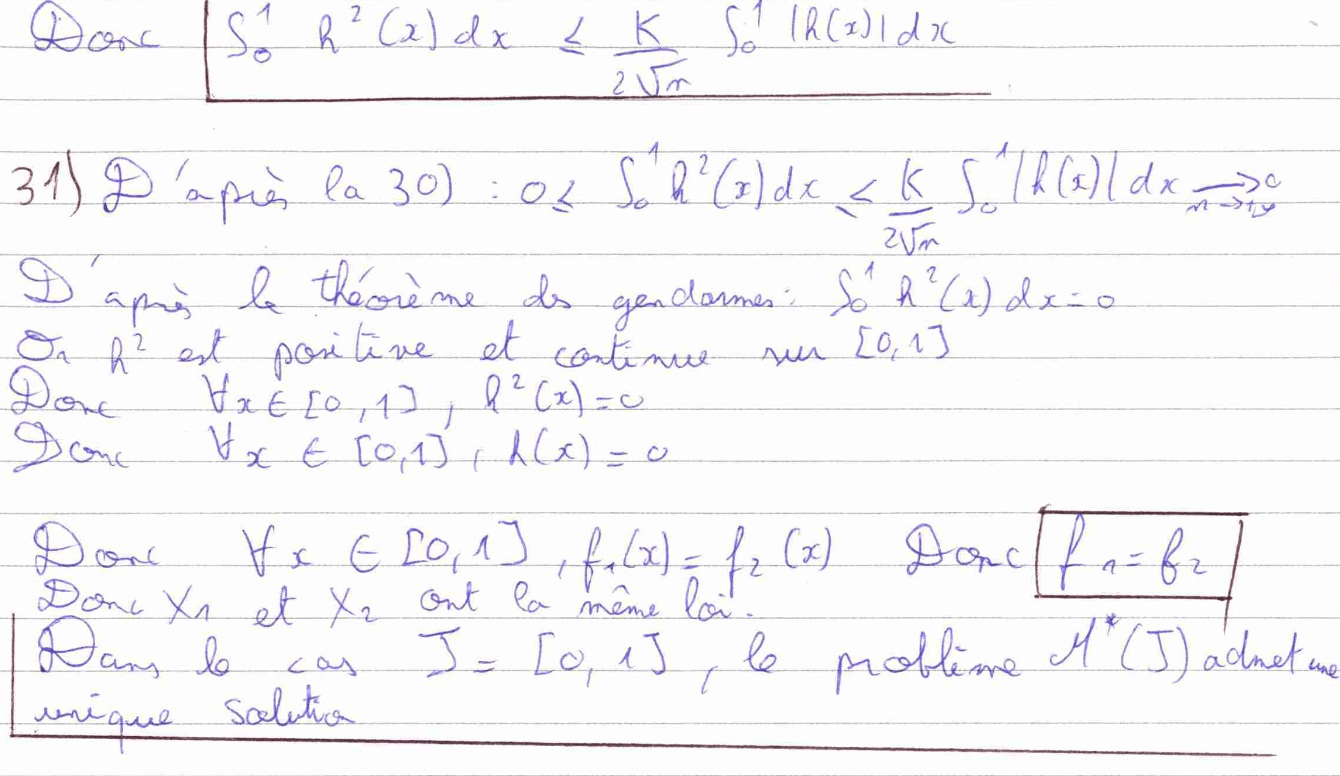 Donc ∫₀¹ h²(x) dx ≤ K/(2√n) ∫₀¹ |h(x)| dx
31) D'après la 30) : 0 ≤ ∫₀¹ h²(x) dx ≤ K/(2√n) ∫₀¹ |h(x)| dx ⟶ 0 n→+∞
D'après le théorème des gendarmes : ∫₀¹ h²(x) dx = 0
Or h² est positive et continue sur [0,1]
Donc ∀x ∈ [0,1], h²(x) = 0
Donc ∀x ∈ [0,1], h(x) = 0
Donc ∀x ∈ [0,1], f₁(x) = f₂(x) Donc f₁ = f₂
Donc X₁ et X₂ ont la même loi.
Dans le cas J = [0,1], le problème M*(J) admet une
unique solution